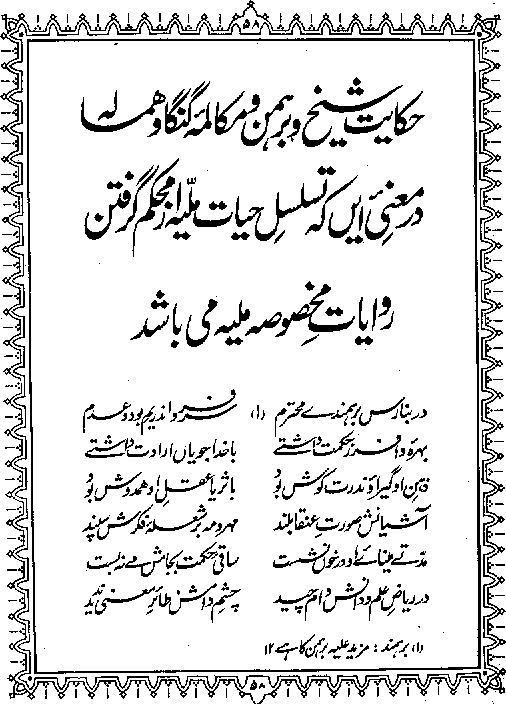 ۵۸
حکایت شیخ و برہمن و مکالمۂ گنگا و ھمالہ
در معنیٔ ایں کہ تسلسلِ حیات ملّیہ از محکم گرفتن
روایات مخصوصہ ملیہ می باشد
در بنارس برہمندے محترم (۱) سر فرو اندر یم بود و عدم
بہرۂ وافر ز حکمت داشتے با خدا جویاں ارادت داشتے
ذہن او گیرا و ندرت کوش بود با ثریا عقل او ہمدوش بود
آشیانش صورت عنقا بلند مہر و مہ بر شعلۂ فکرش سپند
مدتے مینائے او در خوں نشست ساقی حکمت بجامش مے نہ بست
در ریاض علم و دانش دام چید چشم دامش طائر معنی ندید
(۱) برہمند : مزید علیہ برہمن کا ہے ۱۲
۵۸